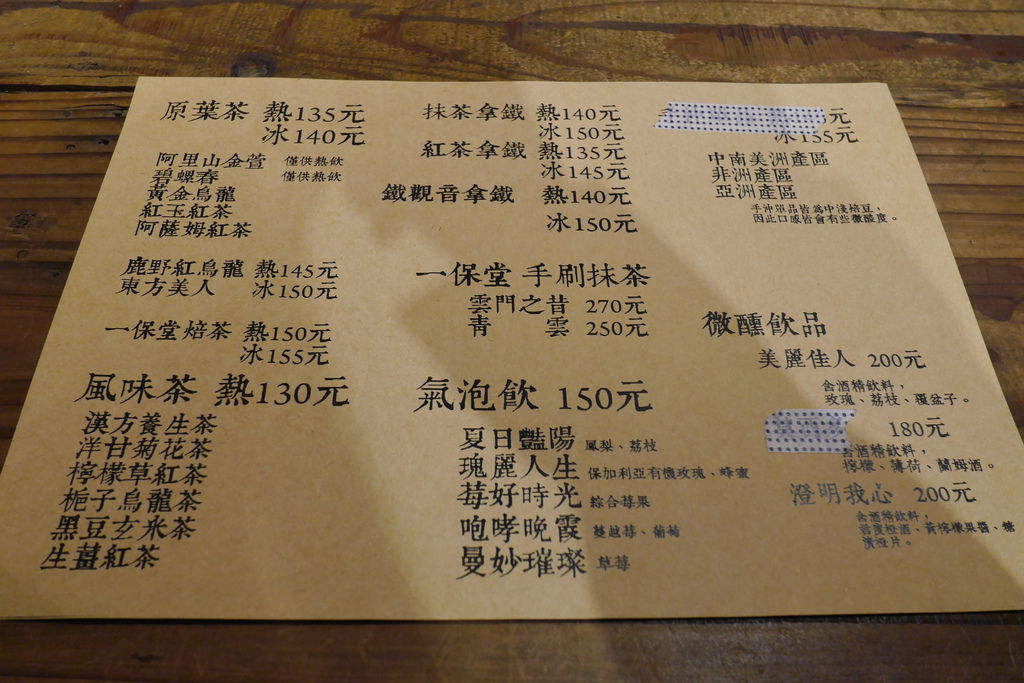 原葉茶 熱135元
冰140元
阿里山金萱 僅供熱飲
碧螺春 僅供熱飲
黃金烏龍
紅玉紅茶
阿薩姆紅茶
鹿野紅烏龍 熱145元
東方美人 冰150元
一保堂焙茶 熱150元
冰155元
風味茶 熱130元
漢方養生茶
洋甘菊花茶
檸檬草紅茶
梔子烏龍茶
黑豆玄米茶
生薑紅茶
抹茶拿鐵 熱140元
冰150元
紅茶拿鐵 熱135元
冰145元
鐵觀音拿鐵 熱140元
冰150元
一保堂 手刷抹茶
雲門之昔 270元
青雲 250元
氣泡飲 150元
夏日豔陽 鳳梨、荔枝
瑰麗人生 保加利亞有機玫瑰、蜂蜜
莓好時光 綜合莓果
咆哮晚霞 蔓越莓、葡萄
曼妙璀璨 草莓
元
冰155元
中南美洲產區
非洲產區
亞洲產區
手沖單品皆為中淺焙豆，
因此口感皆會有些微酸度。
微醺飲品
美麗佳人 200元
含酒精飲料，
玫瑰、荔枝、覆盆子。
180元
含酒精飲料，
檸檬、薄荷、蘭姆酒。
澄明我心 200元
含酒精飲料，
君度橙酒、黃檸檬果醬、糖
漬橙片。